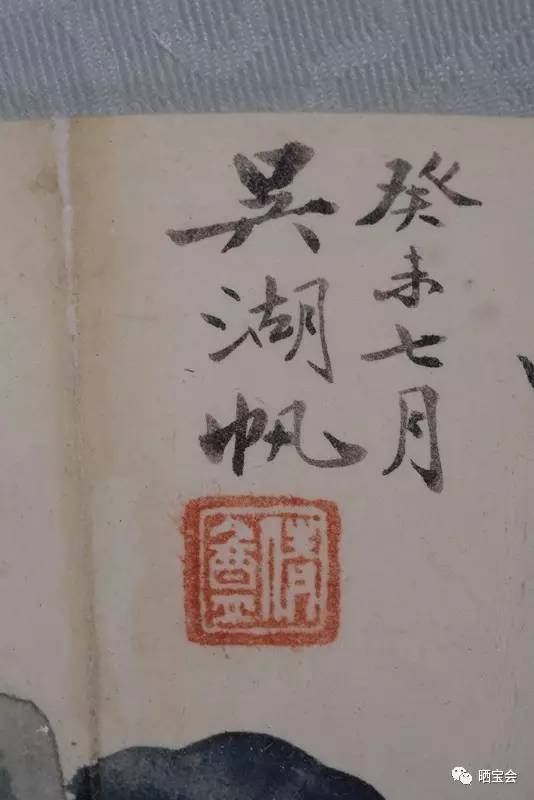 癸未七月
吳湖帆
倩盦
晒宝会